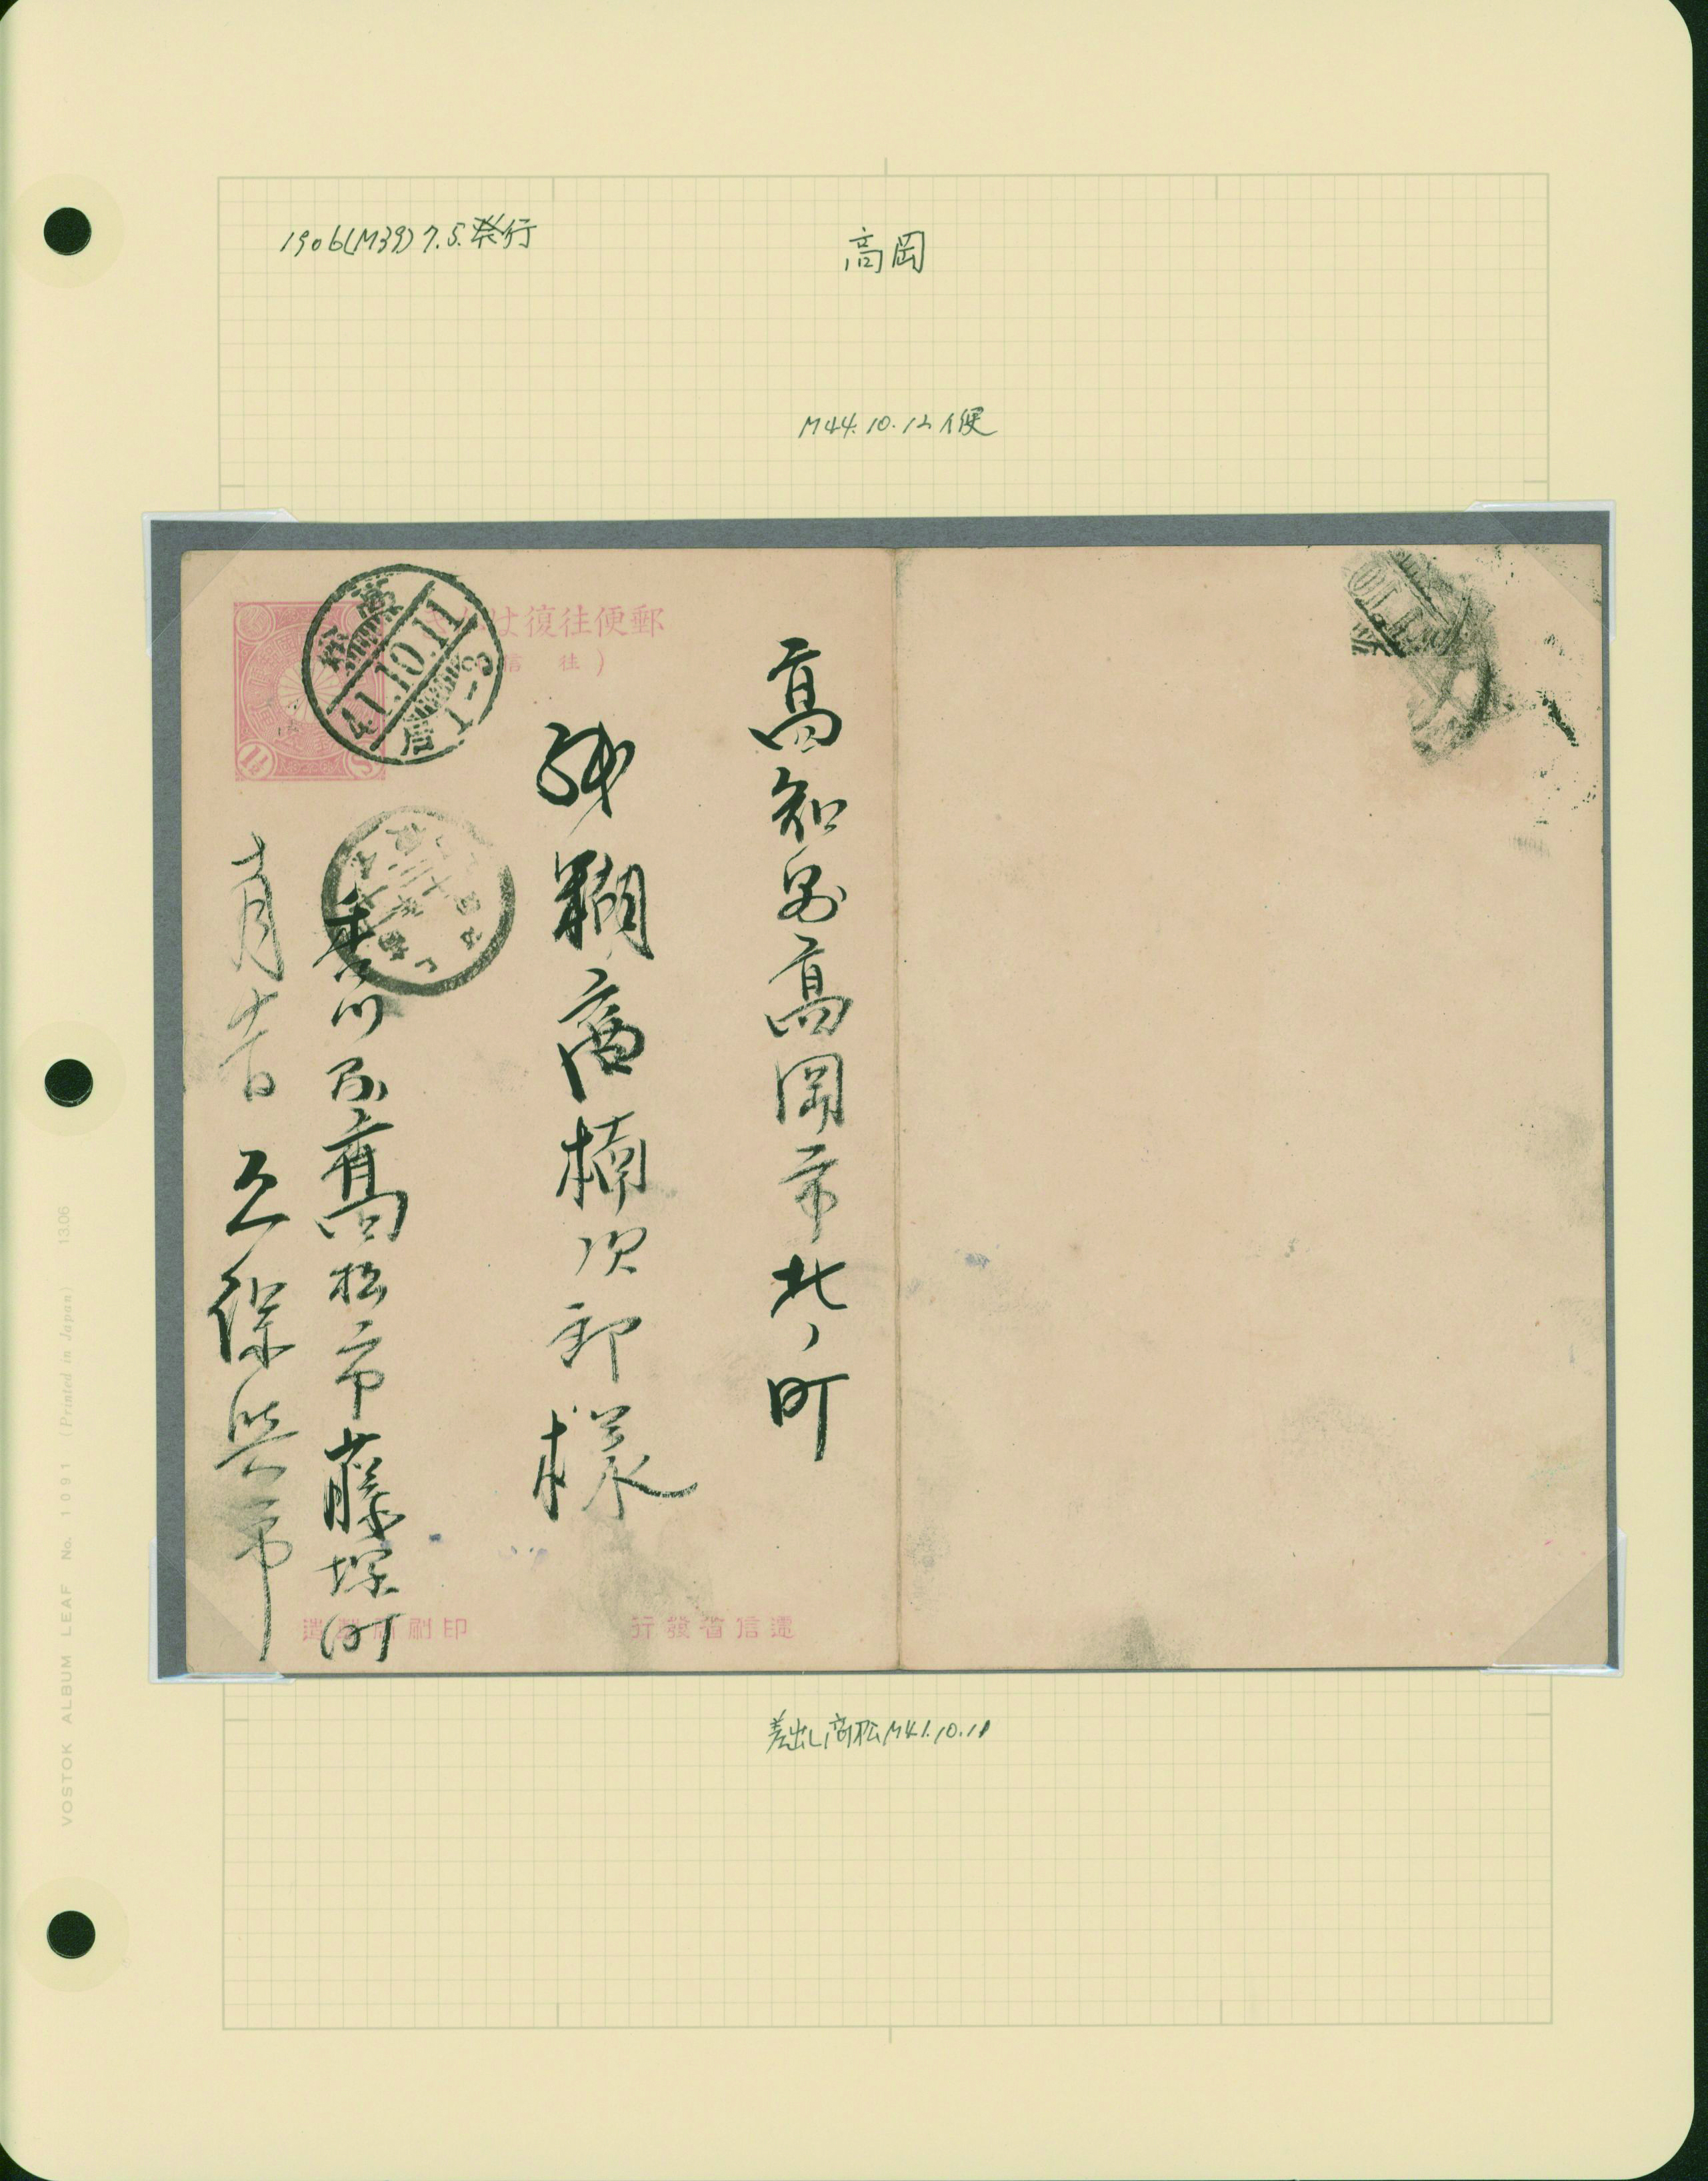 1906(M39)7.5.発行
高岡
M44.10.12 イ便
高松
41.10.11
后1-3
郵便往復はがき
(往信)
高知県高岡市北ノ町
糊商楠次郎様
香川県高松市藤塚町
十月十一日
久保與市
印刷局製造
逓信省發行
差出し高松M41.10.11
VOSTOK ALBUM LEAF No. 1091 (Printed in Japan) 13.06